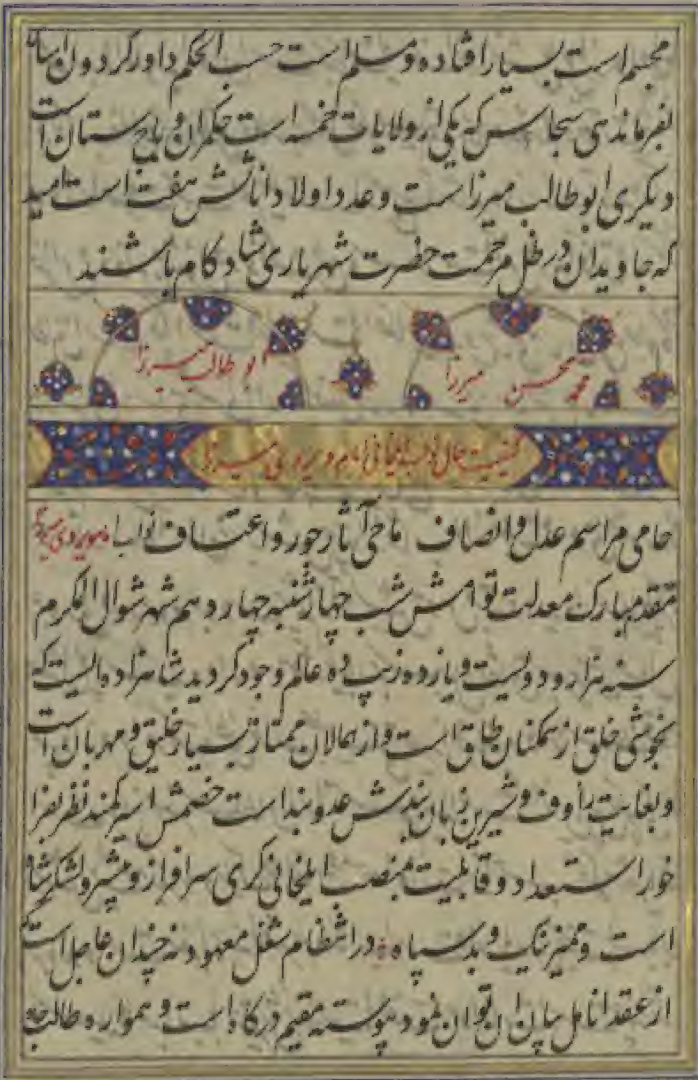 مجسم است بسیار افتاده و مسلم است حسب الحکم داور گردون اساس
بفرماندهی سجاس که یکی از ولایات خمسه است حکمران و باج ستان است
دیگری ابوطالب میرزاست و عدد اولاد اناثش هفت است امید
که جاویدان در ظل مرحمت حضرت شهریاری شاد کام باشند
محمد محسن میرزا
بو طالب میرزا
کیفیت حال نواب ایلخانی امام ویردی میرزا
حامی مراسم عدل و انصاف ماحی آثار جور و اعتساف نواب امام ویردی میرزا
مقدم مبارک معدلت توامش شب چهارشنبه چهاردهم شهر شوال المکرم
سنه هزار و دویست و یازده زیب ده عالم وجود گردید شاهزاده ایست که
بخوشی خلق از همکنان طاق است و از همالان ممتاز بسیار خلیق و مهربان است
و بغایت رأوف و شیرین زبان بندش عدو بند است خصمش اسیر کمند نظر بفرا
خور استعداد و قابلیت بمنصب ایلخانی کری سرافراز و پیشرو لشکر شاه
است و ممیز نیک و بد سپاه در انتظام شغل معهود نه چندان عاجل است که
از عقد انامل بیان آن توان نمود پیوسته مقیم درکاه است و همواره طالب جاه